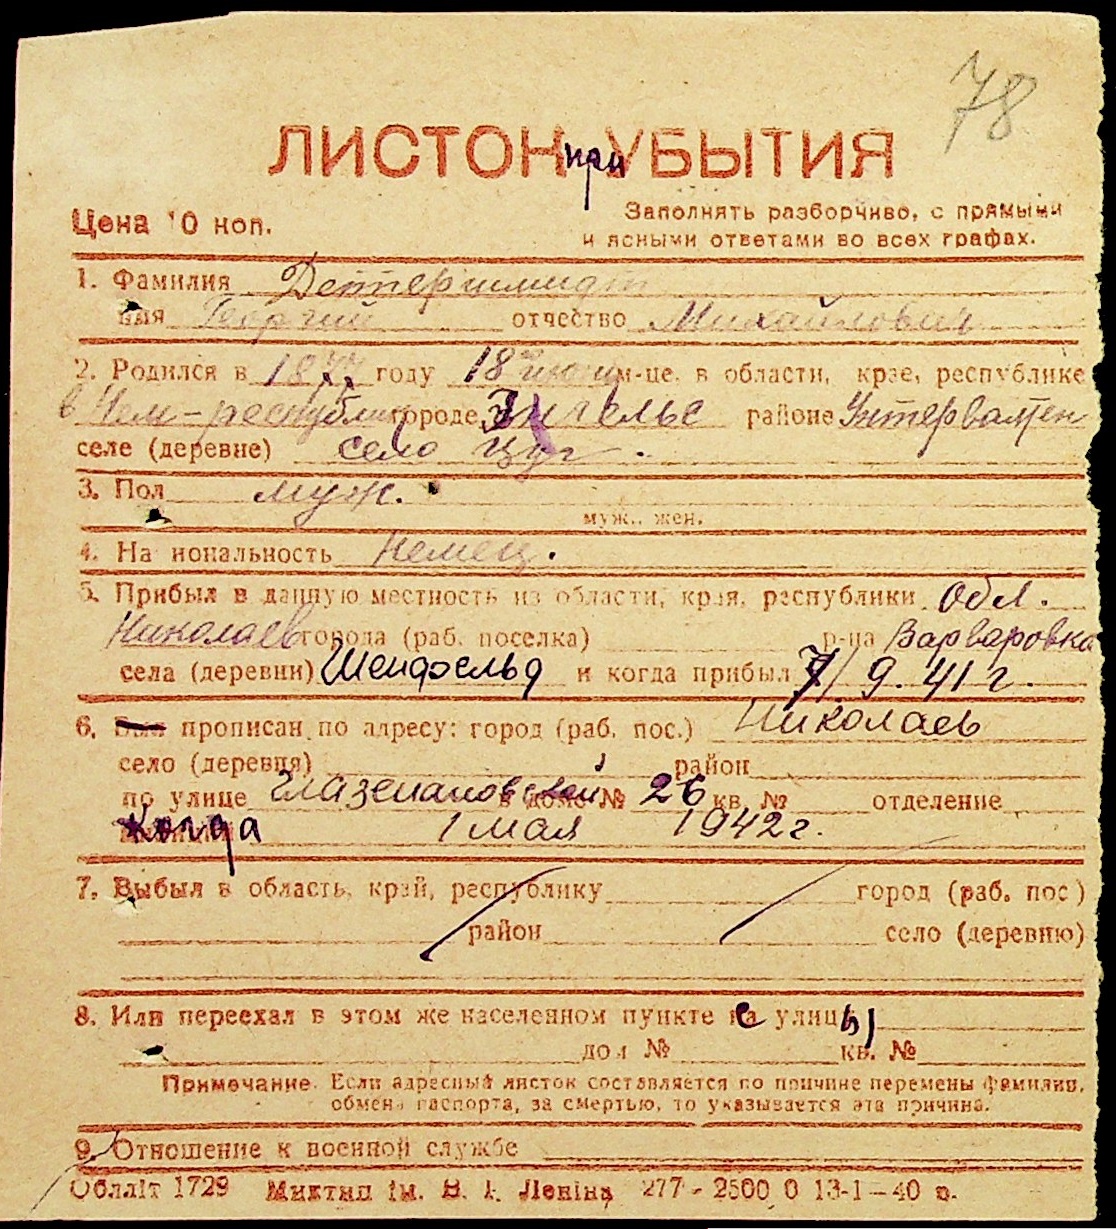 78
ЛИСТОК при УБЫТИЯ
Цена 10 коп.
Заполнять разборчиво, с прямыми
и ясными ответами во всех графах.
1. Фамилия Деттершмидт
имя Георгий отчество Михайлович
2. Родился в 1877 году 18го июня м-це, в области, крае, республике
в Нем-республик городе Энгельс районе Унтервалден
селе (деревне) село Цуг.
3. Пол муж.
муж., жен.
4. Национальность Немец.
5. Прибыл в данную местность из области, края, республики обл.
Николаев города (раб. поселка) р-на Варваровка
села (деревни) Шенфельд и когда прибыл 7/9.41 г.
6. Был прописан по адресу: город (раб. пос.) Николаев
село (деревня) район
по улице Глазенаповской в доме № 26 кв. № отделение
Когда 1 мая 1942 г.
7. Выбыл в область, край, республику город (раб. пос)
район село (деревню)
8. Или переехал в этом же населенном пункте с улицы
дом № кв. №
Примечание. Если адресный листок составляется по причине перемены фамилии,
обмена паспорта, за смертью, то указывается эта причина.
9. Отношение к военной службе
Облліт 1729 Миктип ім. В. І. Леніна 277 - 2500 0 13-1-40 р.